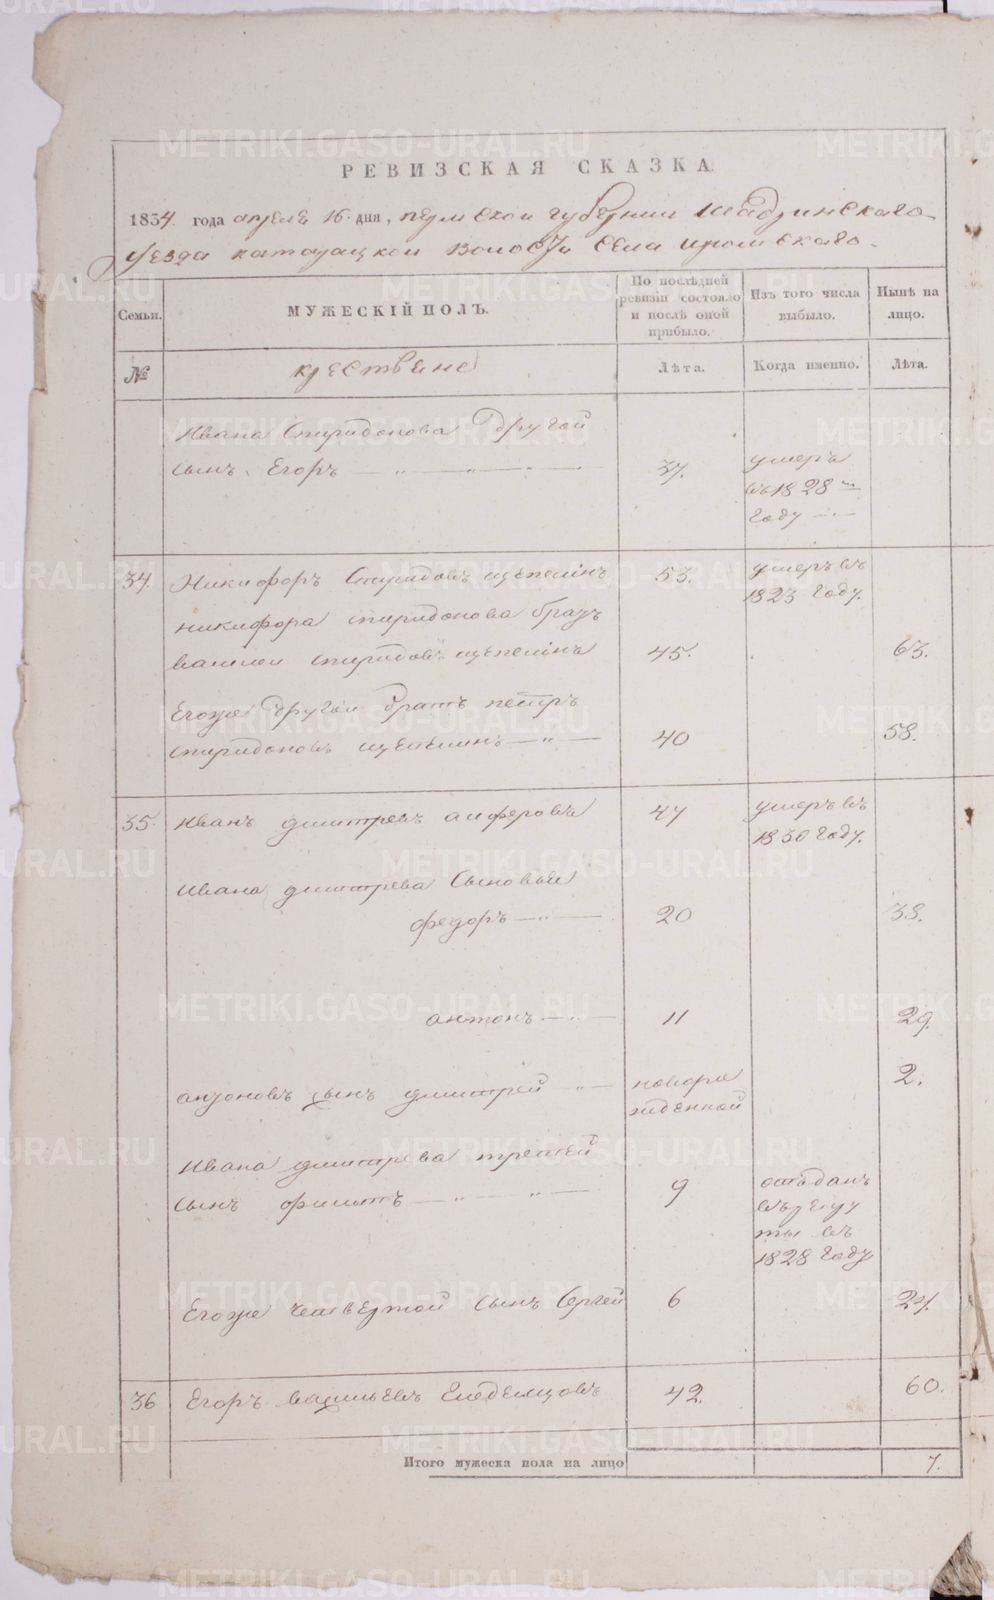 РЕВИЗСКАЯ СКАЗКА
1834 года апреля 16 дня, пермской губернии шадринскаго
уезда катайцкой волости села
Семьи.
МУЖЕСКІЙ ПОЛЪ.
По послѣдней ревизіи состояло и послѣ оной прибыло.
Изъ того числа выбыло.
Нынѣ на лицо.
№
крестьяне
Лѣта.
Когда именно.
Лѣта.
Ивана Спиридонова Другой
сынъ Егоръ 37. умеръ
въ 1828 м
году
34. Никифоръ Спиридовъ щепелинъ 53. умеръ въ
1823 году.
никифора спиридонова братъ
василеи спиридовъ щепелинъ 45. 63.
Егоже Другои братъ петръ
спиридоновъ щепелинъ 40 58.
35. иванъ дмитревъ алферовъ 47 умеръ въ
1830 году.
ивана дмитрева сыновья
федоръ 20 38.
антонъ 11 29.
антоновъ сынъ дмитрей новоро 2.
жденной
ивана дмитрева третей
сынъ филипъ 9 отъданъ
въ рекру
ты въ
1828 году
Егоже четвертой сынъ Сергей 6 24.
36 Егоръ васильевъ 42. 60.
Итого мужеска пола на лицо 7.
METRIKI.GASO-URAL.RU